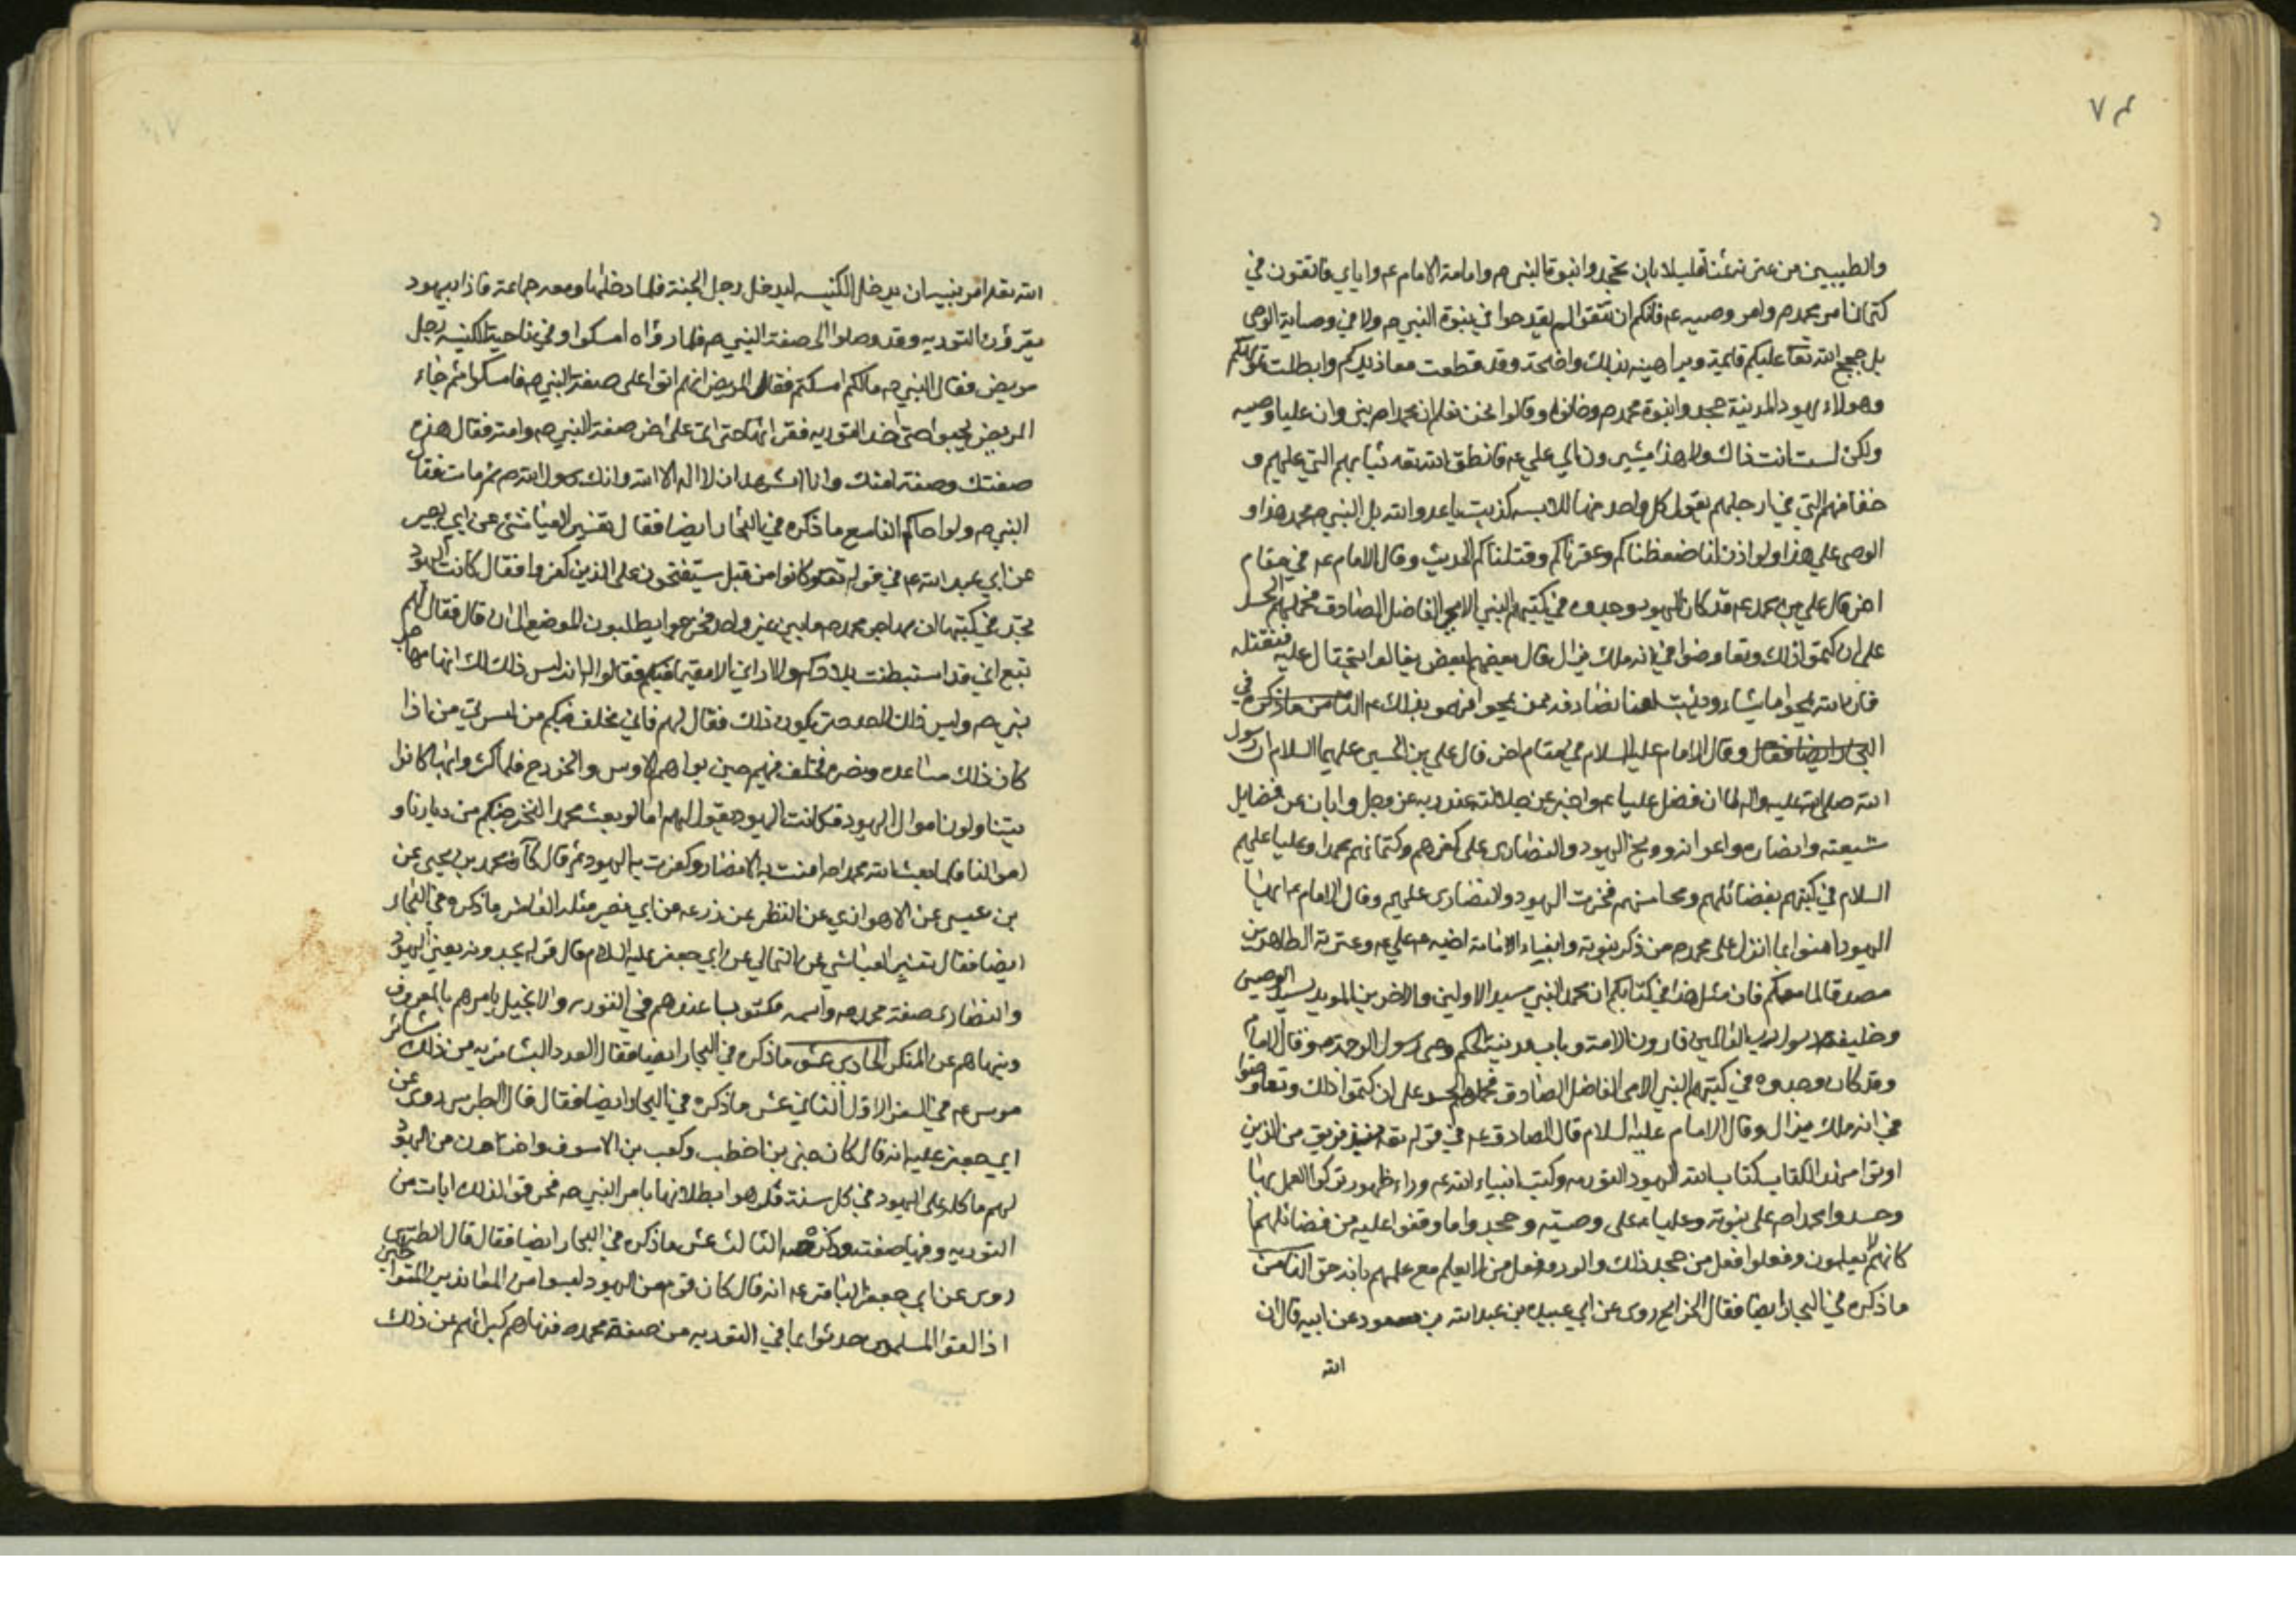 ٧٤
والطيبين من عترته ثمنا قليلا بان تجحدوا نبوة النبي ص وامامة الامام ع واياي فاتقون في
كتمان امر محمد ص وامر وصيه ع فانكم ان تتقوا لم تقدحوا في نبوة النبي ص ولا في وصاية الوصي
بل حجج الله تعا عليكم قائمة وبراهينه بذلك واضحة وقد قطعت معاذيركم وابطلت تمويهكم
وهولاء يهود المدينة جحدوا نبوة محمد ص وخانوه وقالوا نحن نعلم ان محمدا ص نبي وان عليا وصيه
ولكن لست انت ذاك ولا هذا يشيرون الي علي ع فانطق الله تعه ثيابهم التي عليهم و
خفافهم التي في ارجلهم يقول كل واحد منها للابسه كذبت يا عدو الله بل النبي ص محمد هذا و
الوصي علي هذا ولو اذن لنا ضغطناكم وعقرناكم وقتلناكم الحديث وقال الامام ع في مقام
اخر قال علي بن محمد ع قد كان اليهود وجدوه في كتبهم النبي الامي الفاضل الصادق فحملهم الحسد
على ان كتموا ذلك وتعاوضوا في انه ملك يزال قال بعضهم لبعض يقالوا نحتال عليه فنقتله
فان الله يمحوا ما يشاء ويثبت لعلنا نصادفه ممن يمحوا فهموا بذلك ع الثامن ما ذكره في
البحار ايضا فقال وقال الامام عليه السلام في مقام اخر قال علي بن الحسين عليهما السلام ان رسول
الله صلى الله عليه واله لما ان فضل عليا ع واخبر عن جلالته عند ربه عز وجل وابان عن فضايل
شيعته وانصاره واعوانه ووبخ اليهود والنصارى على كفرهم وكتمانهم محمدا وعليا عليهم
السلام في كتبهم بفضائلهم ومحاسنهم فخرت اليهود والنصارى عليهم وقال الامام ع ايها
اليهود امنوا بما انزل على محمد ص من ذكر نبوته وانباء الامامة اخيه ع علي ع وعترته الطاهرين
مصدقا لما معكم فان مثل هذا في كتابكم ان محمد النبي سيد الاولين والاخرين المويد بسيد الوصيين
وخليفة رسول رب العالمين فاروق الامة وباب مدينة الحكم وصي رسول الرحمة ص وقال الامام
وقد كان وجدوه في كتبهم النبي الامي الفاضل الصادق فحملهم الحسد على ان كتموا ذلك وتعاوضوا
في انه ملك يزال وقال الامام عليه السلام قال الصادق ع في قوله تعه نبذ فريق من الذين
اوتوا من الكتاب كتاب الله اليهود التوريه وكتب انبياء الله ع وراء ظهورهم تركوا العمل بها
وحسدوا محمدا ص على نبوته وعليا ع على وصيته وجحدوا ما وقفوا عليه من فضائلهما
كانهم لا يعلمون وفعلوا فعل من جحد ذلك والرد فعل من لا يعلم مع علمهم بانه حق الثامن
ما ذكره في البحار ايضا فقال الخرايج روى عن ابي عبيده بن عبد الله بن مسعود عن ابيه قال ان
الله
الله تعه امر نبيه ان يدخل الكنيسه ليدخل رجل الجنة فلما دخلها ومعه جماعة فاذا يهود
يقرؤن التوريه وقد وصلوا الى صفة النبي ص فلما راوه امسكوا وفي ناحية الكنيسه رجل
مريض فقال النبي ص مالكم امسكتم فقال المريض انهم اتوا على صفة النبي ص فامسكوا ثم جاء
المريض يحبوا حتى اخذ التوريه فقراها حتى اتى على اخر صفة النبي ص وامته فقال هذه
صفتك وصفة امتك وانا اشهد ان لا اله الا الله وانك رسول الله ص ثم مات فقال
النبي ص ولوا اخاكم التاسع ما ذكره في البحار ايضا فقال تفسير العياشي عن ابي بصير
عن ابي عبد الله ع في قوله تعه وكانوا من قبل يستفتحون على الذين كفروا فقال كانت اليهود
تجد في كتبها ان مهاجر محمد ص ما بين عير واحد فخرجوا يطلبون الموضع الى ان قال فقال لهم
تبع اني قد استبطنت بلادكم ولا اراني الا مقيما فيكم فقالوا له انه ليس ذلك لك انها مهاجر
نبي ص وليس ذلك لاحد حتى يكون ذلك فقال لهم فاني مخلف فيكم من اسرتي من اذا
كان ذلك ساعده ونصره فخلف فيهم حين بواهم الاوس والخزرج فلما كثروا بها كانوا
يتناولون اموال اليهود فكانت اليهود يقول لهم اما لو بعث محمد لنخرجنكم من ديارنا و
اموالنا فلما بعث الله محمدا ص امنت به الانصار وكفرت به اليهود ثم قال كا محمد بن يحيى عن
بن عيسى عن الاهوازي عن النظر عن زرعه عن ابي بصير مثله العاشر ما ذكره في البحار
ايضا فقال تفسير العياشي عن الثمالي عن ابي جعفر عليه السلام قال قوله يجدونه يعني اليهود
والنصارى صفة محمد ص واسمه مكتوبا عندهم في التوريه والانجيل يامرهم بالمعروف
وينهاهم عن المنكر الحادي عشر ما ذكره في البحار ايضا فقال العدد البشاير به من ذلك بشائر
موسى ع في السفر الاول الثاني عشر ما ذكره في البحار ايضا فقال قال الطبرسي روى عن
ابي جعفر ع انه قال كان حيي بن اخطب وكعب بن الاسرف واخرون من اليهود
لهم ماكله على اليهود في كل سنة فكرهوا بطلانها بامر النبي ص فحرفوا لذلك ايات من
التوريه وفيها صفته وذكره الثالث عشر ما ذكره في البحار ايضا فقال قال الطبرسي
روى عن ابي جعفر الباقر ع انه قال كان قوم من اليهود ليسوا من المعاندين المتواطين
اذا لقوا المسلمين حدثوا بما في التوريه من صفة محمد ص فنهاهم كبرائهم عن ذلك